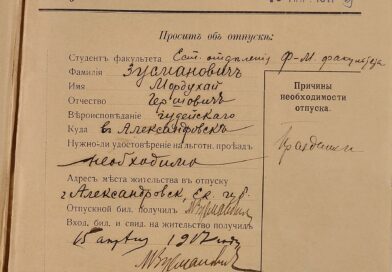 Проситъ объ отпускѣ:
Студентъ факультета Ест. отдѣленія Ф-М. факультета
Фамилія Зусмановичъ
Имя Мордухай
Отчество Гершовичъ
Вѣроисповѣданіе Іудейскаго
Куда въ Александровскъ
Нужно-ли удостовѣреніе на льготн. проѣздъ
необходимо
Адресъ мѣста жительства въ отпуску
г. Александровск, Ек. губ.
Отпускной бил. получилъ
Вход. бил. и свид. на жительство получилъ
15 апрѣля 1917 года
Причины
необходимости
отпуска.
Праздники